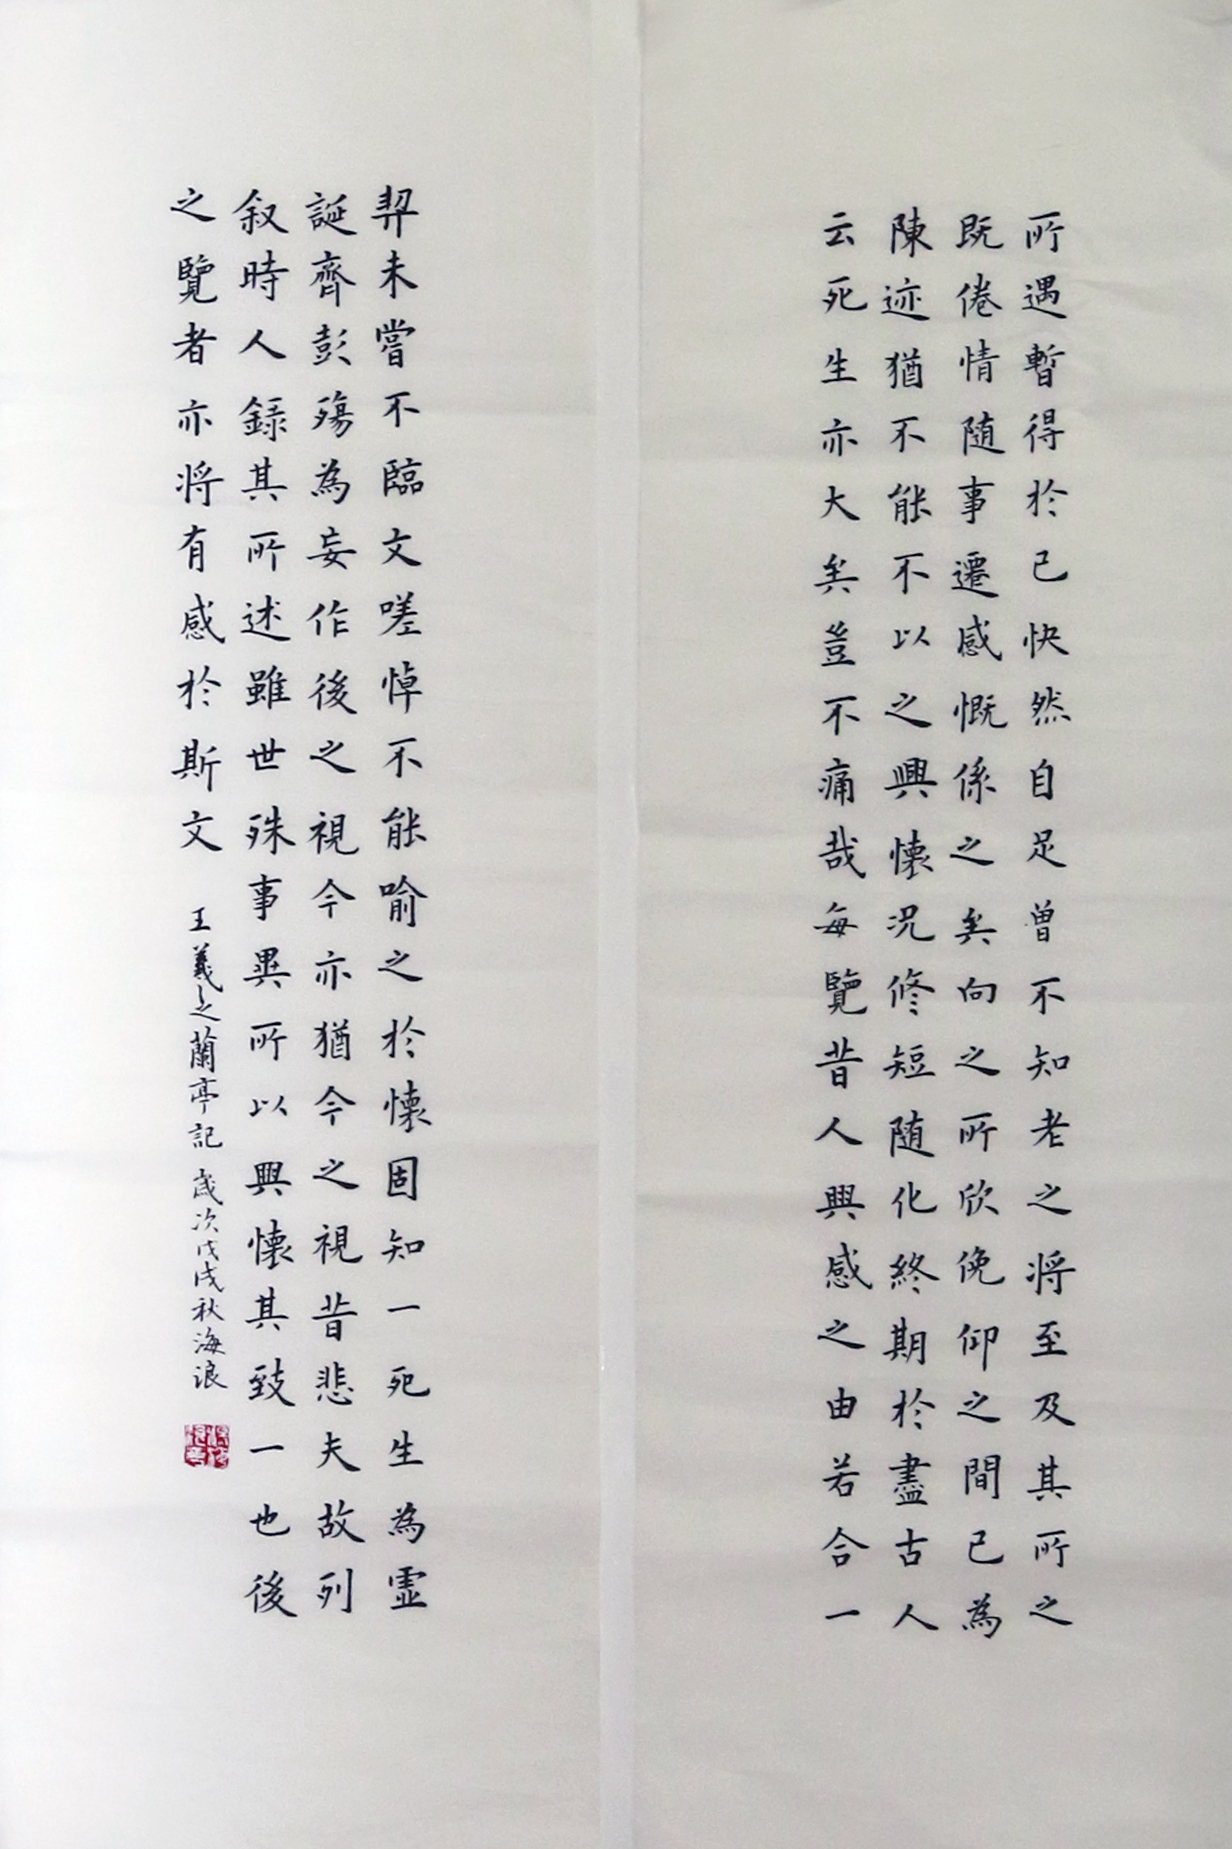 所遇暫得於己快然自足曾不知老之将至及其所之
既倦情随事遷感慨係之矣向之所欣俛仰之間已為
陳迹猶不能不以之興懐况修短随化終期於盡古人
云死生亦大矣豈不痛哉每覽昔人興感之由若合一
契未嘗不臨文嗟悼不能喻之於懐固知一死生為虛
誕齊彭殤為妄作後之視今亦猶今之視昔悲夫故列
叙時人録其所述雖世殊事異所以興懐其致一也後
之覽者亦将有感於斯文 王羲之蘭亭記 歲次戊戌秋海浪